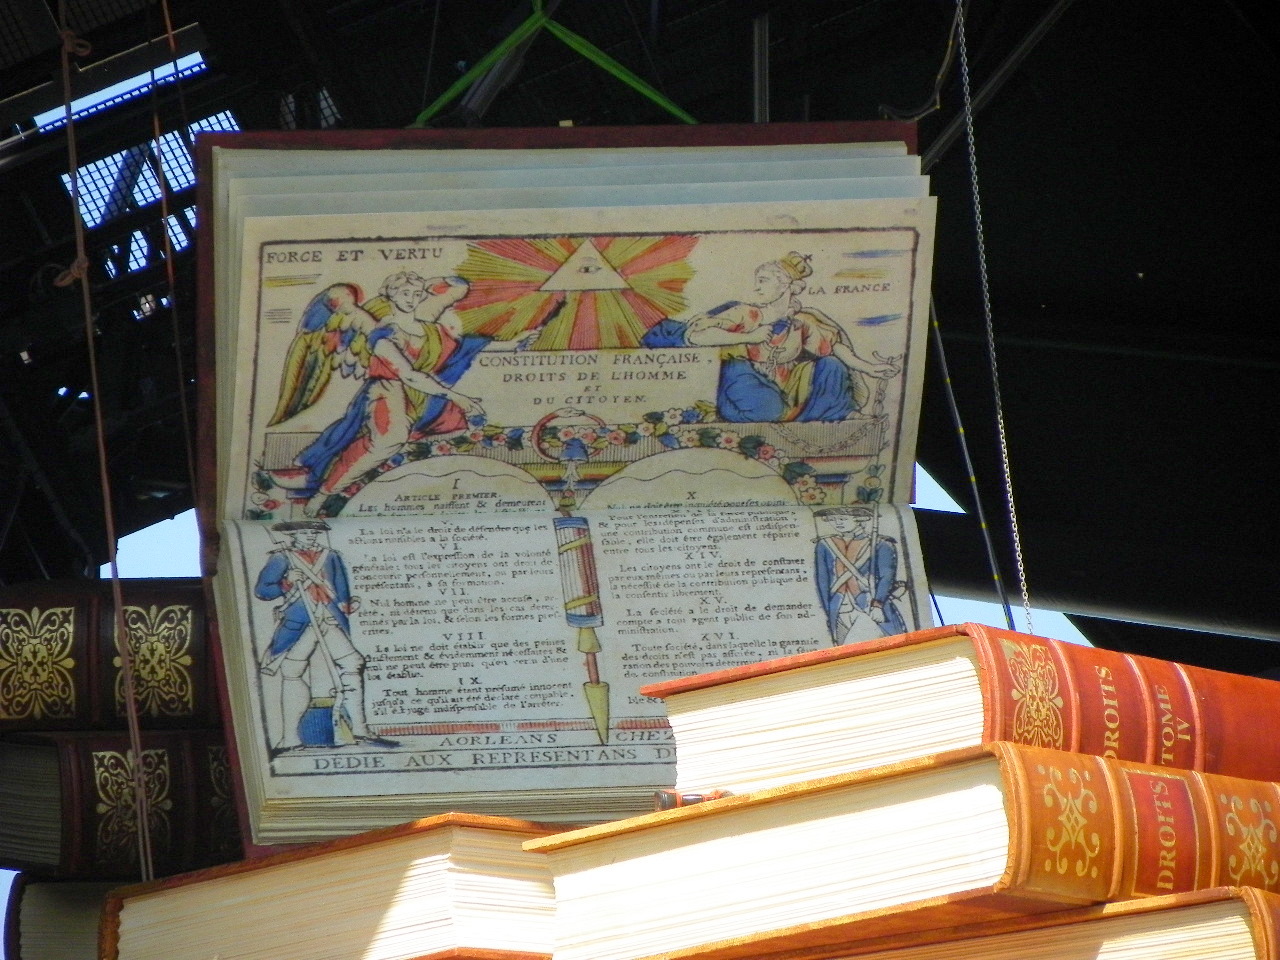 FORCE ET VERTU
LA FRANCE
CONSTITUTION FRANÇAISE.
DROITS DE L'HOMME
ET
DU CITOYEN.
I
ARTICLE PREMIER.
Les hommes naissent & demeurent
La loi n'a le droit de défendre que les
actions nuisibles à la société.
VI.
La loi est l'expression de la volonté
générale; tous les citoyens ont droit de
concourir personnellement, ou par leurs
représentans, à sa formation.
VII.
Nul homme ne peut être accusé, ar-
rêté, ni détenu que dans les cas déter-
minés par la loi, & selon les formes pres-
crites.
VIII.
La loi ne doit établir que des peines
strictement & évidemment nécessaires &
nul ne peut être puni, qu'en vertu d'une
loi établie.
IX.
Tout homme étant présumé innocent
jusqu'à ce qu'il ait été déclaré coupable,
s'il est jugé indispensable de l'arrêter,
X
Nul ne doit être inquiété pour ses opini-
& pour les dépenses d'administration,
une contribution commune est indispen-
sable, elle doit être également répartie
entre tous les citoyens.
XIV.
Les citoyens ont le droit de constater
par eux-mêmes ou par leurs représentans,
la nécessité de la contribution publique de
la consentir librement,
XV.
La société a le droit de demander
compte à tout agent public de son ad-
ministration.
XVI.
Toute société, dans laquelle la garantie
des droits n'est pas assurée, ni la sépa-
ration des pouvoirs
A ORLEANS CHEZ
DÉDIÉ AUX REPRESENTANS D
DROITS
TOME
IV
DROITS